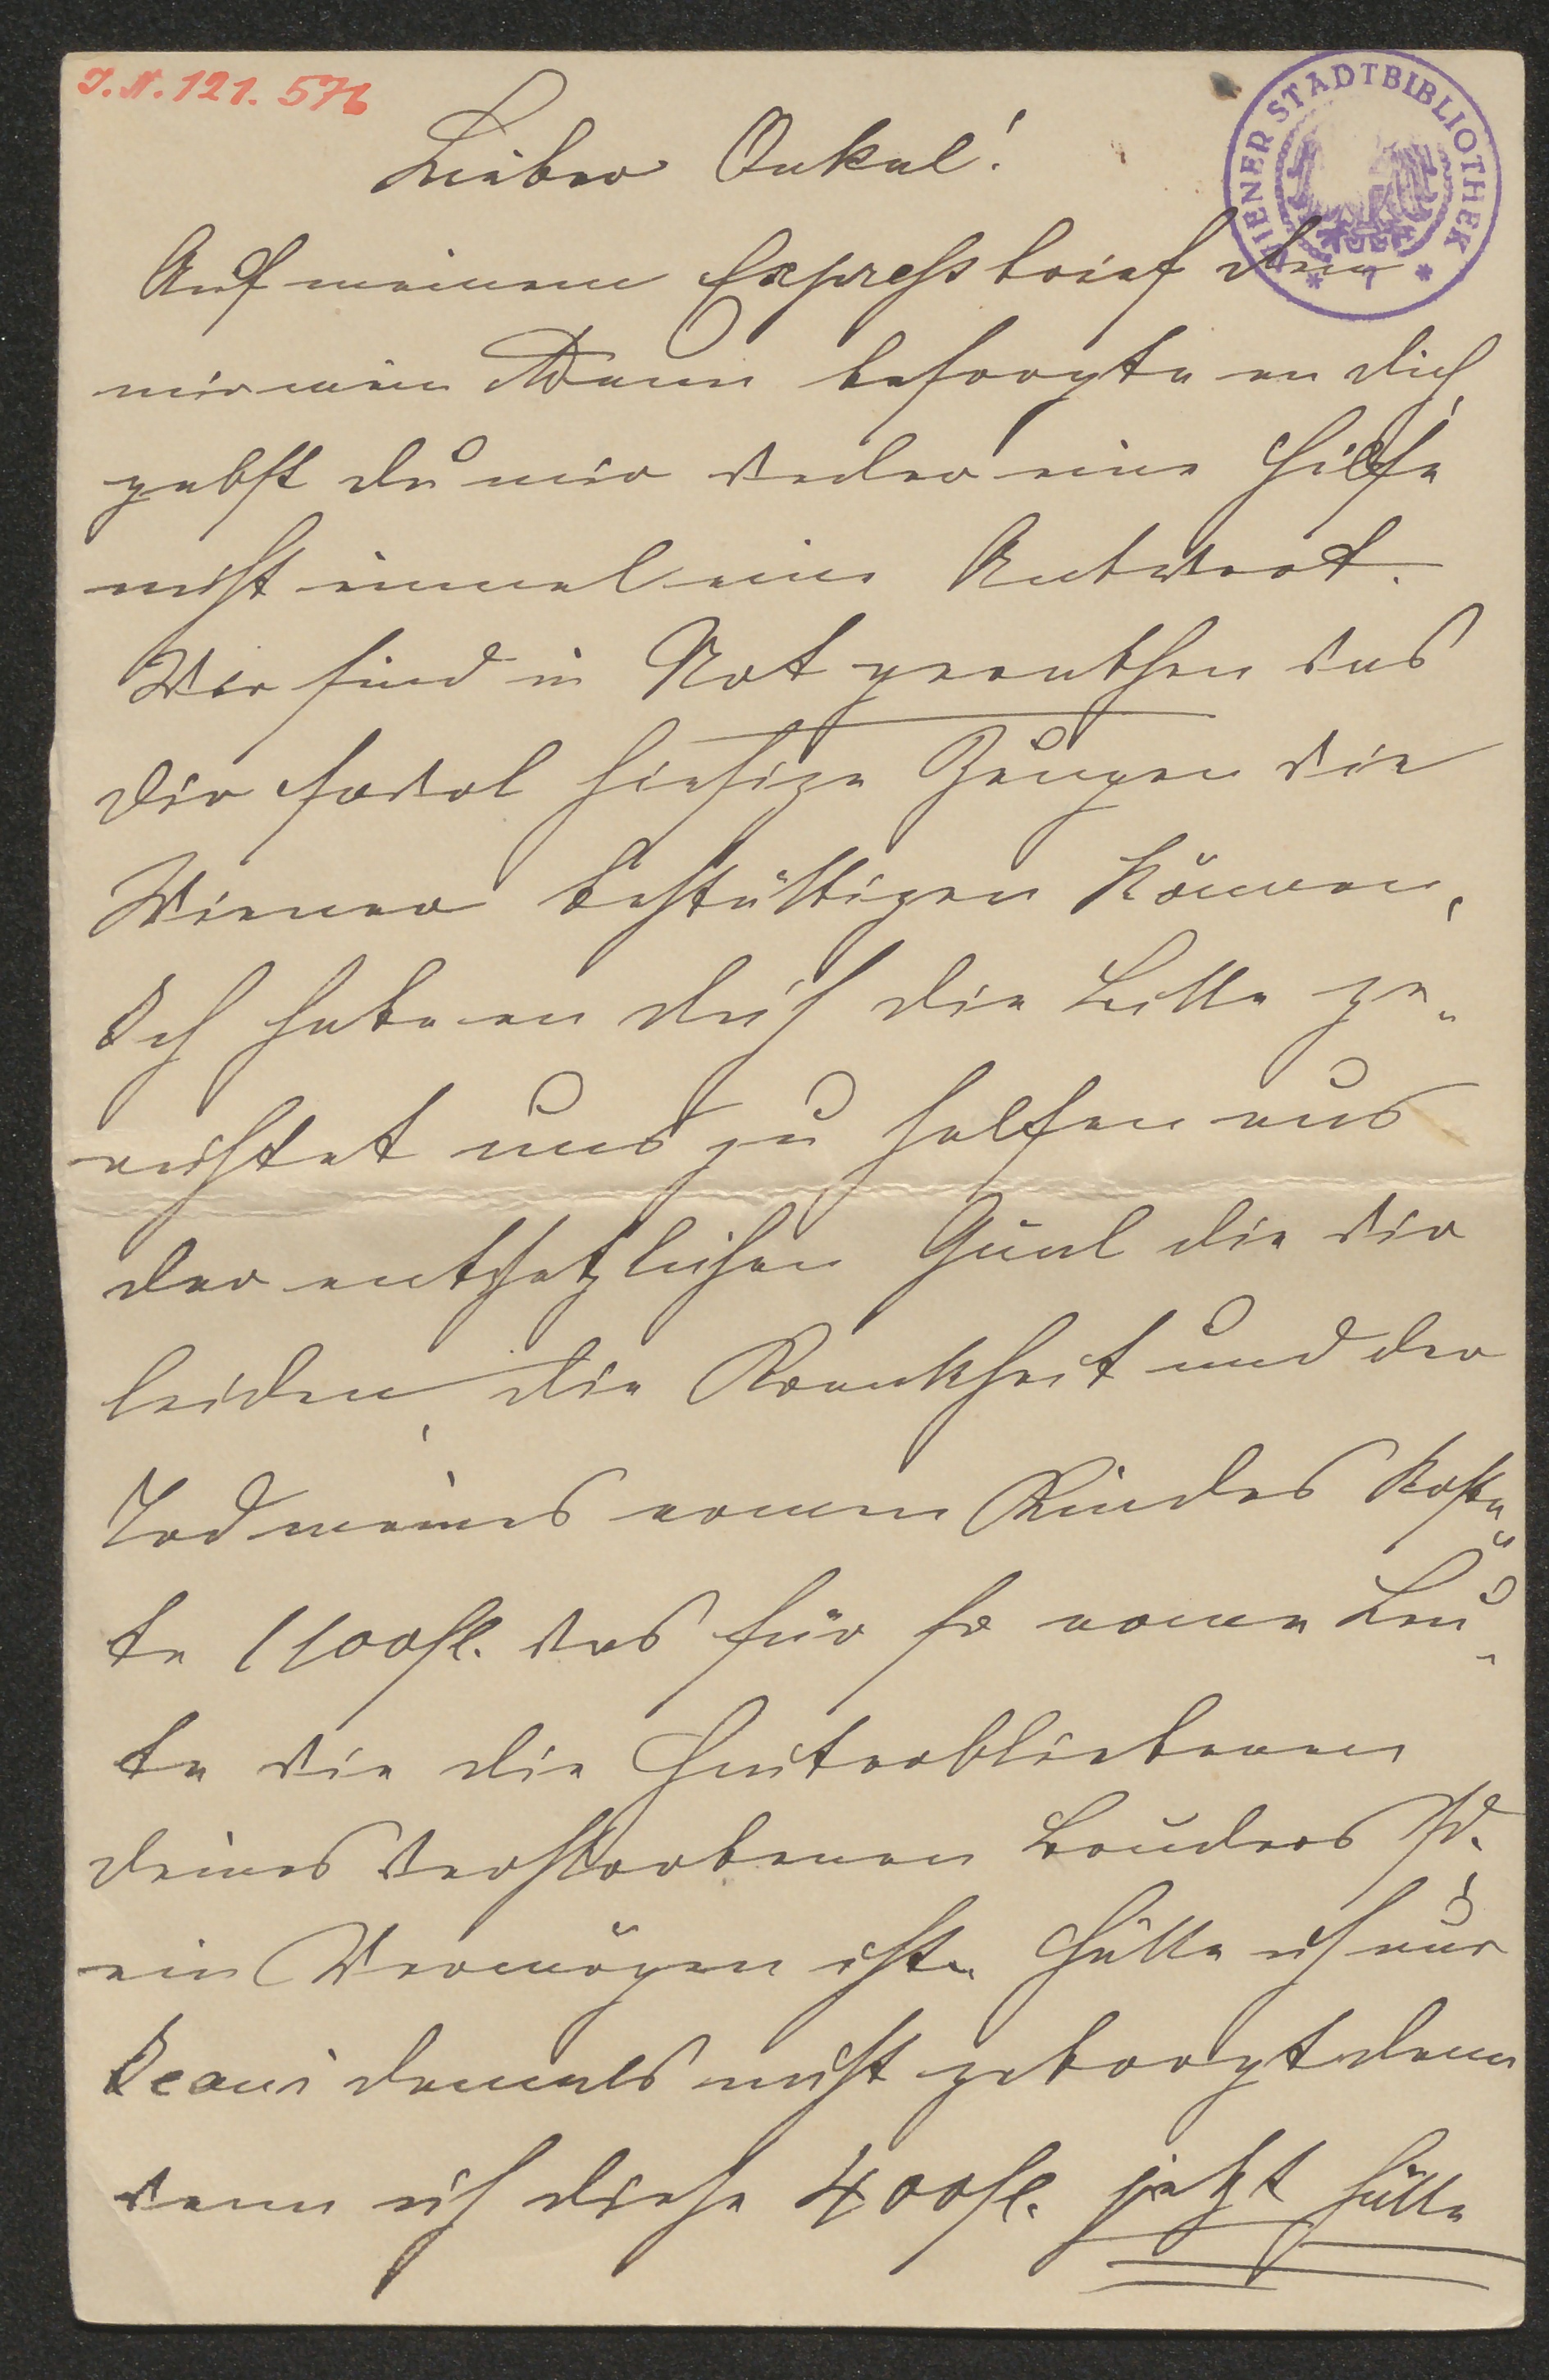 J. N. 121. 576
WIENER STADTBIBLIOTHEK
Lieber Onkel!
Auf meinem Expressbrief den
mir mein Mann besorgte an dich,
gabst du mir weder eine Hilfe
nicht einmal eine Antwort.
Wir sind in Not gerathen was
dir sowol hiesige Zeugen wie
Wiener bestättigen können,
Ich habe an dich die Bitte ge-
richtet uns zu helfen aus
der entsetzlichen Qual die wir
leiden, die Krankheit und der
Tod meines armen Kindes koste-
te 1100fl. was für so arme Leu-
te wie die Hinterbliebenen
deines verstorbenen Bruders
ein Vermögen ist. Hätte ich nur
damals nicht geborgt denn
wenn ich diese 400fl. jetzt hätte